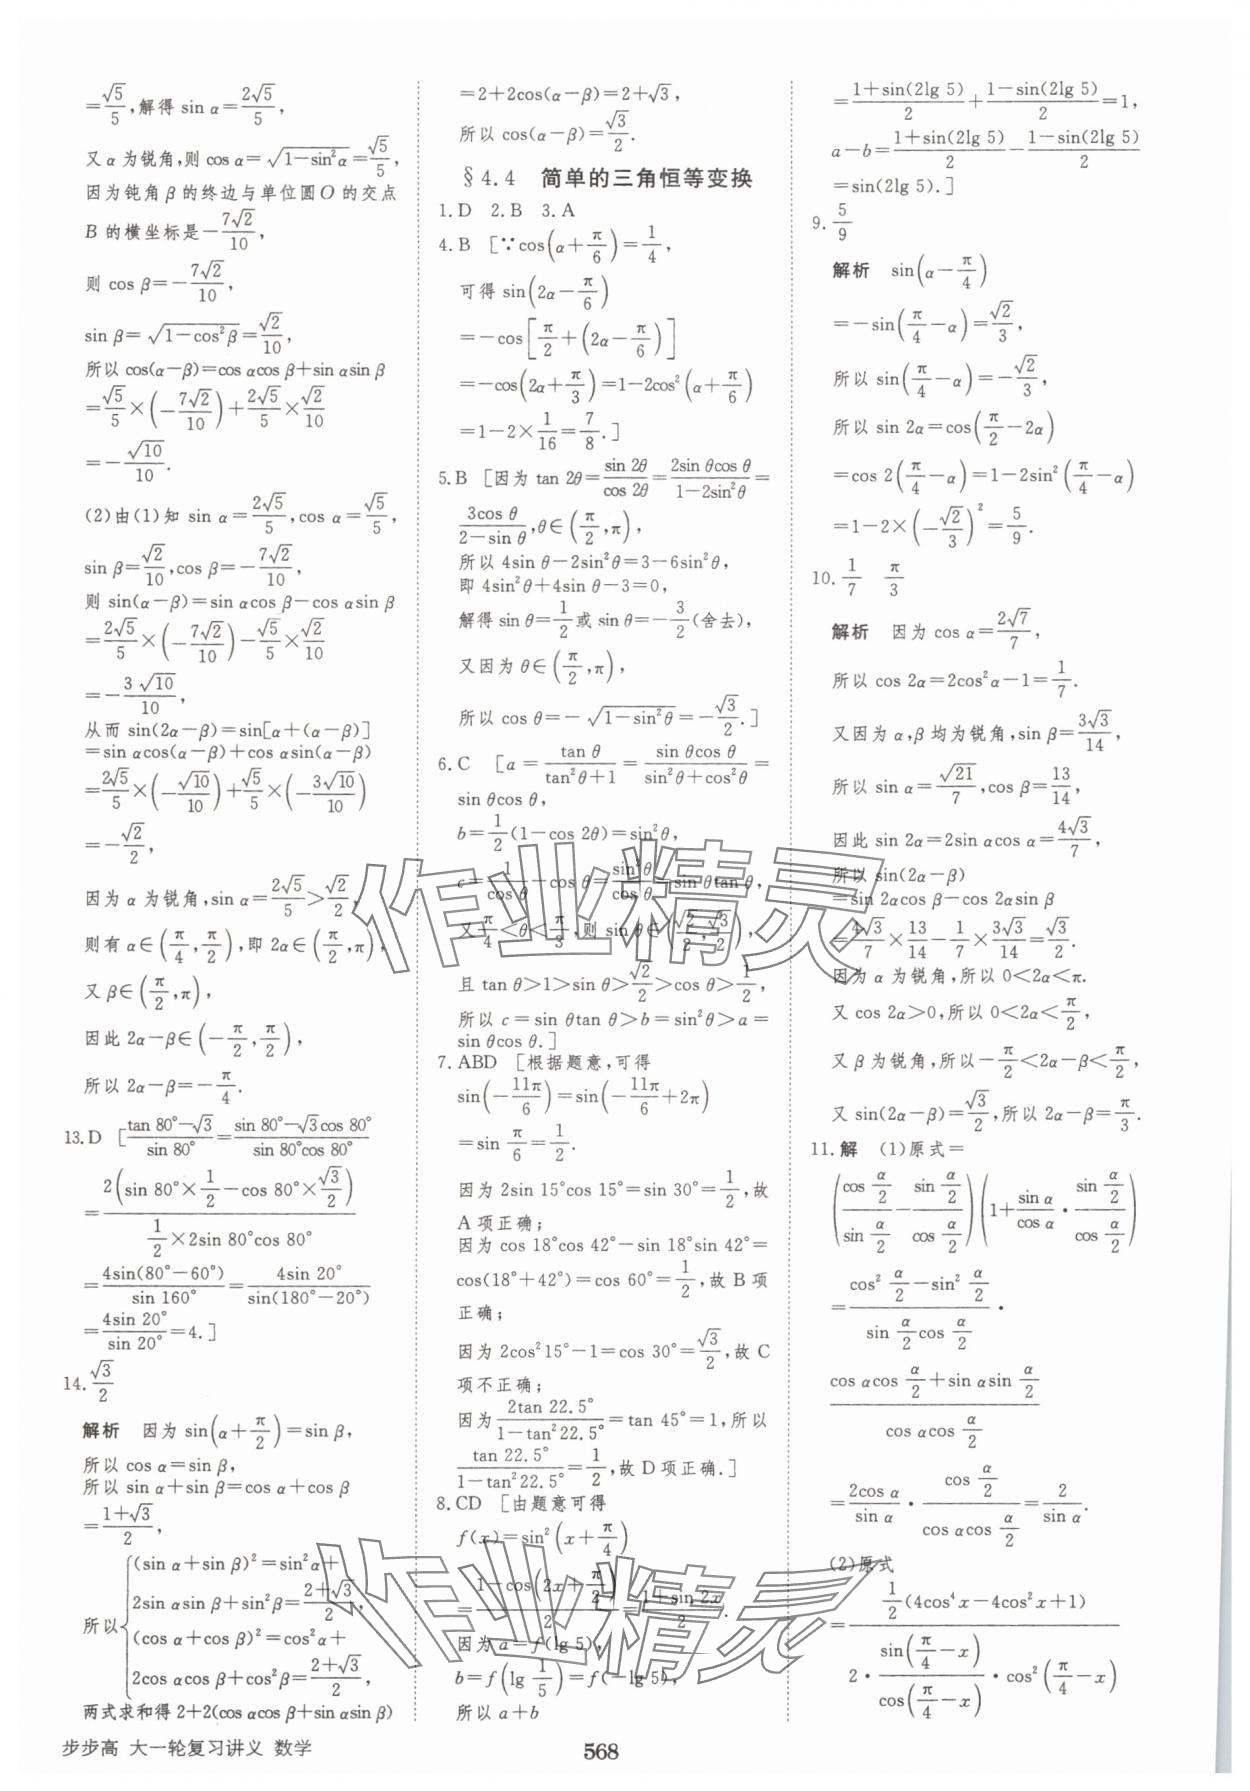 =√5/5,解得 sin α=2√5/5,
又 α 为锐角,则 cos α=√(1-sin²α)=√5/5,
因为钝角 β 的终边与单位圆 O 的交点
B 的横坐标是-7√2/10,
则 cos β=-7√2/10,
sin β=√(1-cos²β)=√2/10,
所以 cos(α-β)=cos αcos β+sin αsin β
=√5/5×(-7√2/10)+2√5/5×√2/10
=-√10/10.
(2)由(1)知 sin α=2√5/5,cos α=√5/5,
sin β=√2/10,cos β=-7√2/10,
则 sin(α-β)=sin αcos β-cos αsin β
=2√5/5×(-7√2/10)-√5/5×√2/10
=-3√10/10,
从而 sin(2α-β)=sin[α+(α-β)]
=sin αcos(α-β)+cos αsin(α-β)
=2√5/5×(-√10/10)+√5/5×(-3√10/10)
=-√2/2,
因为 α 为锐角,sin α=2√5/5>√2/2,
则有 α∈(π/4,π/2),即 2α∈(π/2,π),
又 β∈(π/2,π),
因此 2α-β∈(-π/2,π/2),
所以 2α-β=-π/4.
13.D [(tan 80°-√3)/sin 80°=(sin 80°-√3cos 80°)/(sin 80°cos 80°)
=2(sin 80°×1/2-cos 80°×√3/2)/(1/2×2sin 80°cos 80°)
=4sin(80°-60°)/sin 160°=4sin 20°/sin(180°-20°)
=4sin 20°/sin 20°=4.]
14.√3/2
解析 因为 sin(α+π/2)=sin β,
所以 cos α=sin β,
所以 sin α+sin β=cos α+cos β
=(1+√3)/2,
所以{(sin α+sin β)²=sin²α+
2sin αsin β+sin²β=(2+√3)/2,
(cos α+cos β)²=cos²α+
2cos αcos β+cos²β=(2+√3)/2,
两式求和得 2+2(cos αcos β+sin αsin β)
=2+2cos(α-β)=2+√3,
所以 cos(α-β)=√3/2.
§4.4 简单的三角恒等变换
1.D 2.B 3.A
4.B [∵cos(α+π/6)=1/4,
可得 sin(2α-π/6)
=-cos[π/2+(2α-π/6)]
=-cos(2α+π/3)=1-2cos²(α+π/6)
=1-2×1/16=7/8.]
5.B [因为 tan 2θ=sin 2θ/cos 2θ=2sin θcos θ/(1-2sin²θ)=
3cos θ/(2-sin θ),θ∈(π/2,π),
所以 4sin θ-2sin²θ=3-6sin²θ,
即 4sin²θ+4sin θ-3=0,
解得 sin θ=1/2或 sin θ=-3/2(舍去),
又因为 θ∈(π/2,π),
所以 cos θ=-√(1-sin²θ)=-√3/2.]
6.C [a=tan θ/(tan²θ+1)=sin θcos θ/(sin²θ+cos²θ)=
sin θcos θ,
b=1/2(1-cos 2θ)=sin²θ,
c=1/cos θ-cos θ=sin²θ/cos θ=sin θtan θ,
又π/4<θ<π/3,则 sin θ∈(√2/2,√3/2),
且 tan θ>1>sin θ>√2/2>cos θ>1/2,
所以 c=sin θtan θ>b=sin²θ>a=
sin θcos θ.]
7.ABD [根据题意,可得
sin(-11π/6)=sin(-11π/6+2π)
=sin π/6=1/2.
因为 2sin 15°cos 15°=sin 30°=1/2,故
A 项正确;
因为 cos 18°cos 42°-sin 18°sin 42°=
cos(18°+42°)=cos 60°=1/2,故 B 项
正确;
因为 2cos²15°-1=cos 30°=√3/2,故 C
项不正确;
因为 2tan 22.5°/(1-tan²22.5°)=tan 45°=1,所以
tan 22.5°/(1-tan²22.5°)=1/2,故 D 项正确.]
8.CD [由题意可得
f(x)=sin²(x+π/4)
=(1-cos(2x+π/2))/2=(1+sin 2x)/2,
因为 a=f(lg 5),
b=f(lg 1/5)=f(-lg 5),
所以 a+b
=(1+sin(2lg 5))/2+(1-sin(2lg 5))/2=1,
a-b=(1+sin(2lg 5))/2-(1-sin(2lg 5))/2
=sin(2lg 5).]
9.5/9
解析 sin(α-π/4)
=-sin(π/4-α)=√2/3,
所以 sin(π/4-α)=-√2/3,
所以 sin 2α=cos(π/2-2α)
=cos 2(π/4-α)=1-2sin²(π/4-α)
=1-2×(-√2/3)²=5/9.
10.1/7 π/3
解析 因为 cos α=2√7/7,
所以 cos 2α=2cos²α-1=1/7.
又因为 α,β 均为锐角,sin β=3√3/14,
所以 sin α=√21/7,cos β=13/14,
因此 sin 2α=2sin αcos α=4√3/7,
所以 sin(2α-β)
=sin 2αcos β-cos 2αsin β
=4√3/7×13/14-1/7×3√3/14=√3/2.
因为 α 为锐角,所以 0<2α<π.
又 cos 2α>0,所以 0<2α<π/2,
又 β 为锐角,所以-π/2<2α-β<π/2,
又 sin(2α-β)=√3/2,所以 2α-β=π/3.
11.解 (1)原式=
(cos α/2/sin α/2-sin α/2/cos α/2)(1+sin α/cos α·sin α/2/cos α/2)
=(cos² α/2-sin² α/2)/(sin α/2 cos α/2)·
(cos αcos α/2+sin αsin α/2)/(cos αcos α/2)
=2cos α/sin α·cos α/2/(cos αcos α/2)=2/sin α.
(2)原式
=1/2(4cos⁴x-4cos²x+1)/(2·sin(π/4-x)/cos(π/4-x)·cos²(π/4-x))
步步高 大一轮复习讲义 数学
568
作业精灵
作业精灵